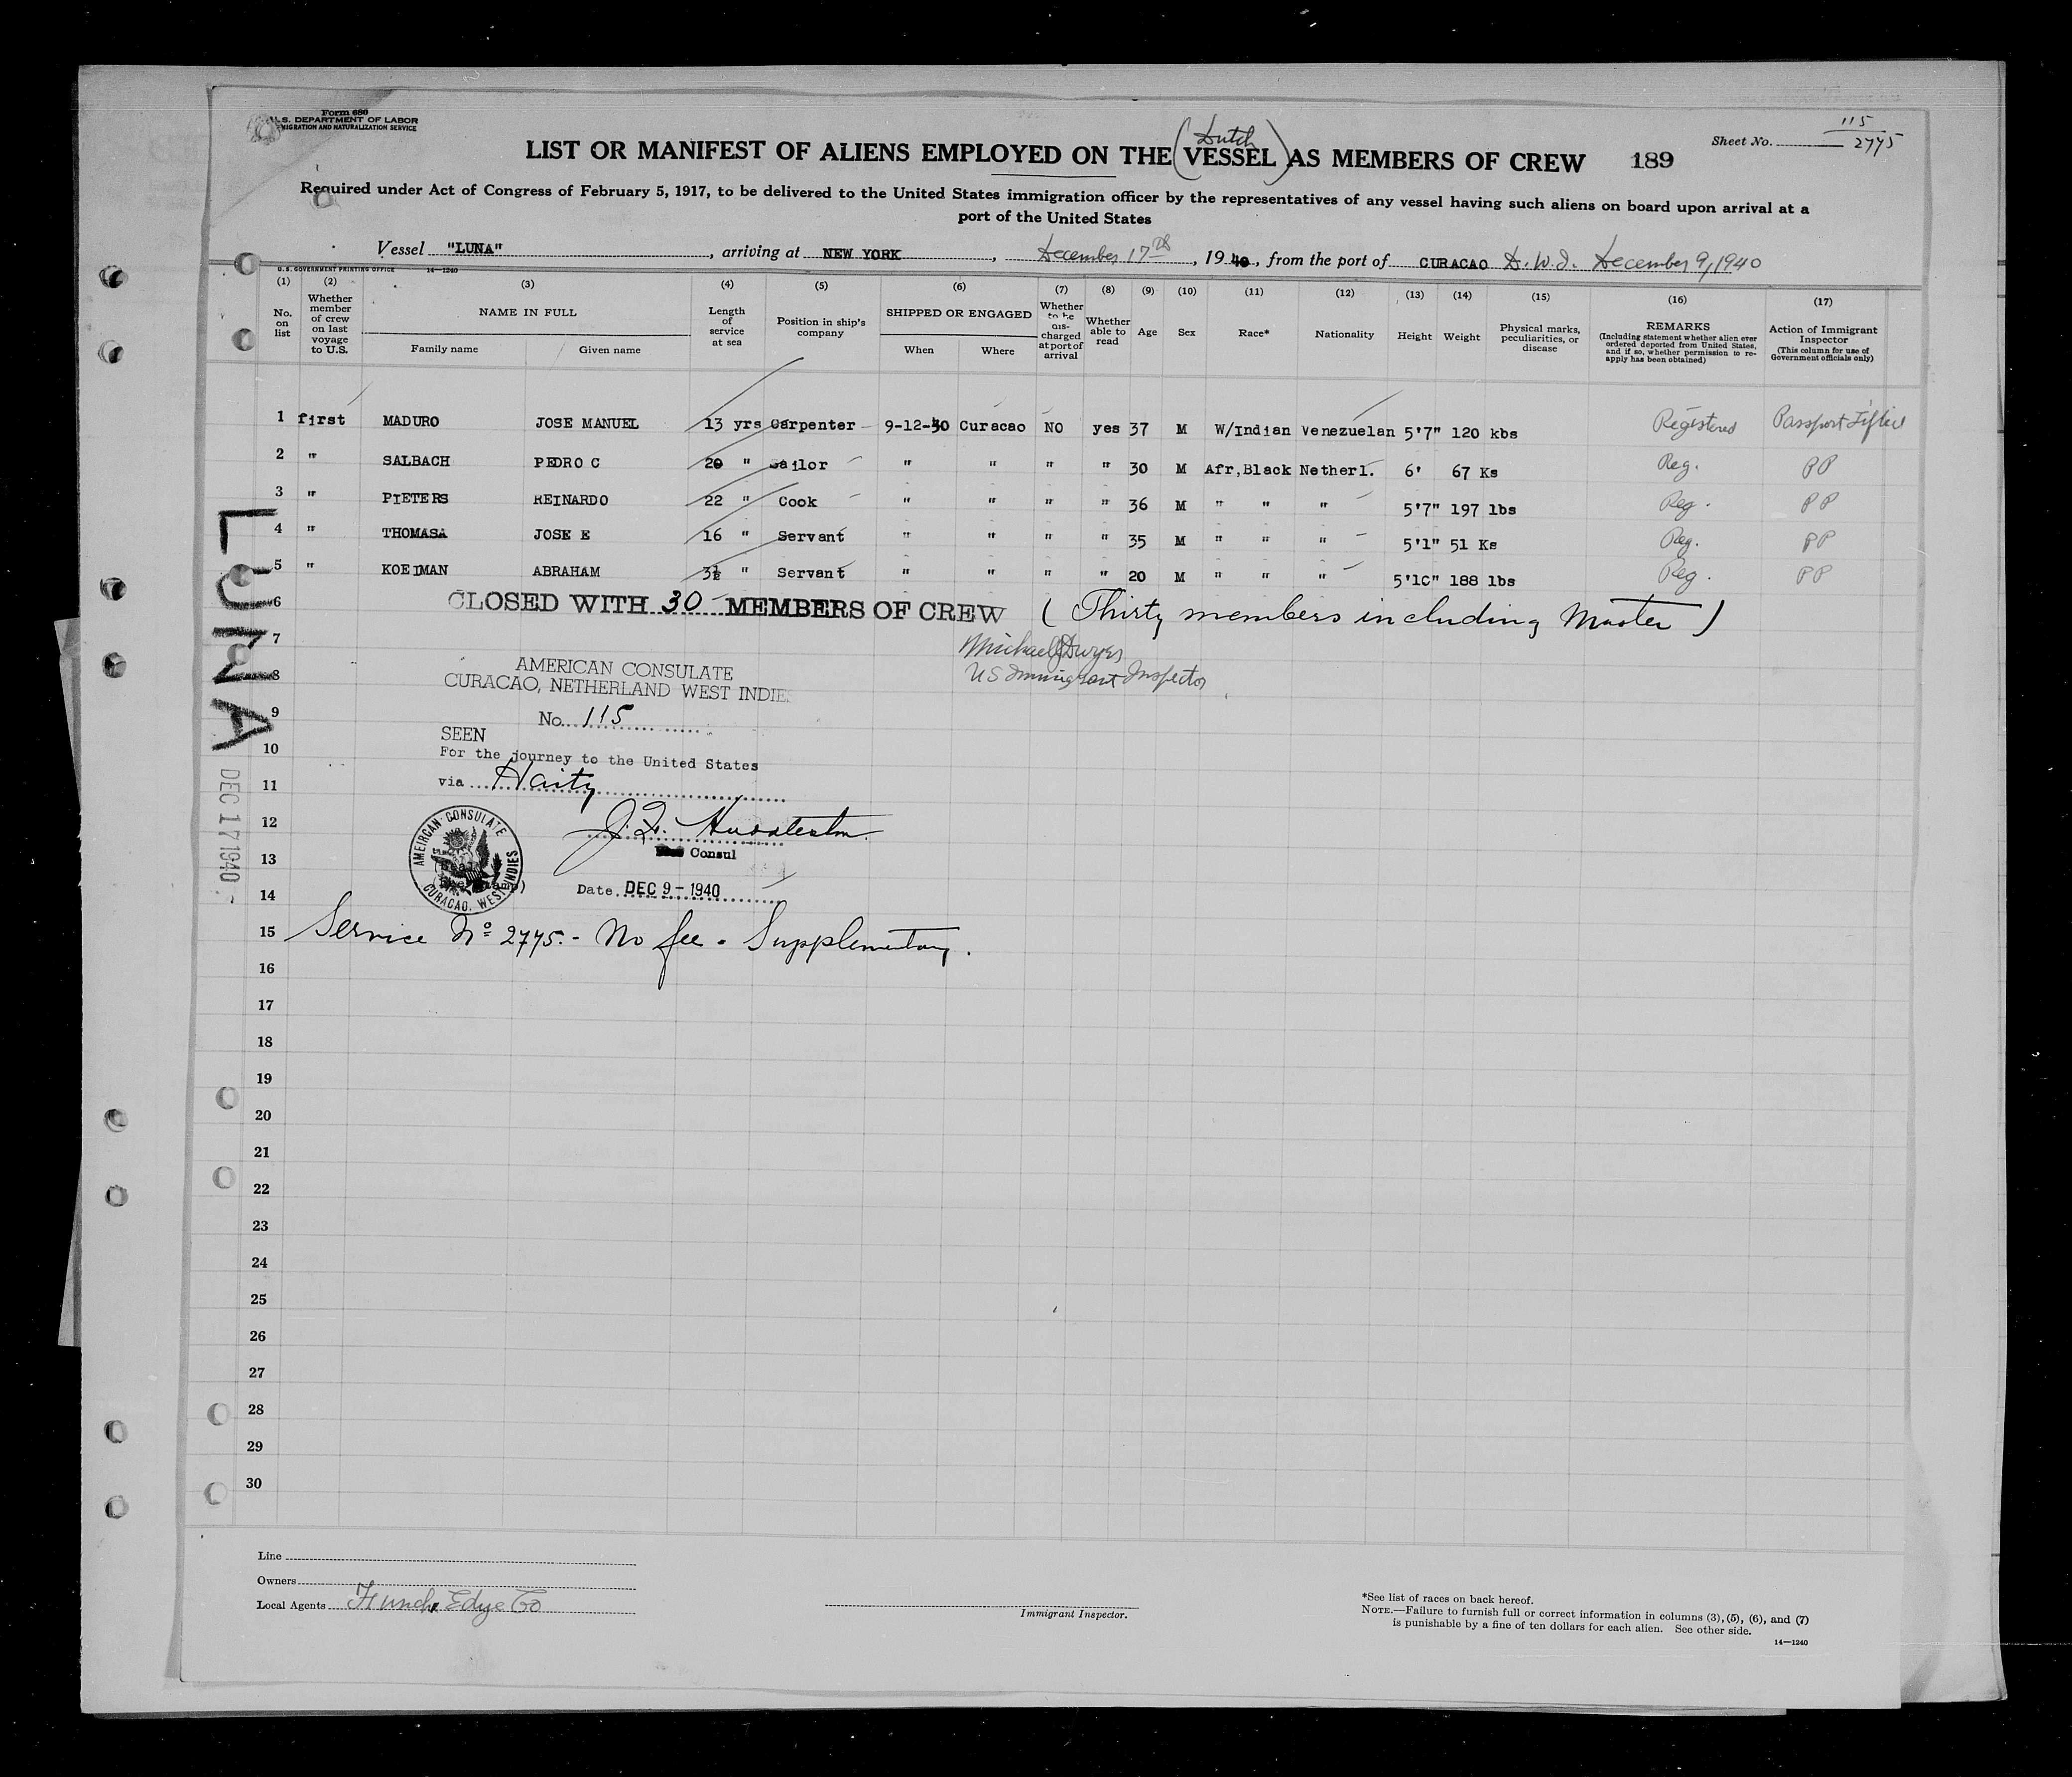 Form 680
U.S. DEPARTMENT OF LABOR
IMMIGRATION AND NATURALIZATION SERVICE
115
Sheet No. 2775
(Dutch)
LIST OR MANIFEST OF ALIENS EMPLOYED ON THE VESSEL AS MEMBERS OF CREW 189
Required under Act of Congress of February 5, 1917, to be delivered to the United States immigration officer by the representatives of any vessel having such aliens on board upon arrival at a
port of the United States
Vessel "LUNA", arriving at NEW YORK, December 17th, 1940, from the port of CURACAO D.W.I. December 9, 1940
U.S. GOVERNMENT PRINTING OFFICE 14—1240
(1) No. on list
(2) Whether member of crew on last voyage to U.S.
(3) NAME IN FULL
Family name Given name
(4) Length of service at sea
(5) Position in ship's company
(6) SHIPPED OR ENGAGED
When Where
(7) Whether to be discharged at port of arrival
(8) Whether able to read
(9) Age
(10) Sex
(11) Race*
(12) Nationality
(13) Height
(14) Weight
(15) Physical marks, peculiarities, or disease
(16) REMARKS
(Including statement whether alien ever ordered deported from United States, and if so, whether permission to re-apply has been obtained)
(17) Action of Immigrant Inspector
(This column for use of Government officials only)
1 first MADURO JOSE MANUEL 13 yrs Carpenter 9-12-40 Curacao NO yes 37 M W/Indian Venezuelan 5'7" 120 kbs Registered Passport Lifted
2 " SALBACH PEDRO C 20 " Sailor " " " " 30 M Afr,Black Netherl. 6' 67 Ks Reg. PP
3 " PIETERS REINARDO 22 " Cook " " " " 36 M " " " 5'7" 197 lbs Reg. PP
4 " THOMASA JOSE E 16 " Servant " " " " 35 M " " " 5'1" 51 Ks Reg. PP
5 " KOEIMAN ABRAHAM 3½ " Servant " " " " 20 M " " " 5'1C" 188 lbs Reg. PP
6 CLOSED WITH 30 MEMBERS OF CREW (Thirty members including Master)
7 Michael J Dwyer
8 US Immigrant Inspector
AMERICAN CONSULATE
CURACAO, NETHERLAND WEST INDIE
9 No. 115
SEEN
10 For the journey to the United States
11 via Haity
12
13 Consul
AMERICAN CONSULATE
CURACAO, WEST INDIES
14 Date DEC 9 - 1940
15 Service No 2775.- No fee - Supplementary.
16
17
18
19
20
21
22
23
24
25
26
27
28
29
30
LUNA
DEC 17 1940
Line
Owners
Local Agents Funch, Edye Co
Immigrant Inspector.
*See list of races on back hereof.
NOTE.—Failure to furnish full or correct information in columns (3), (5), (6), and (7)
is punishable by a fine of ten dollars for each alien. See other side.
14—1240